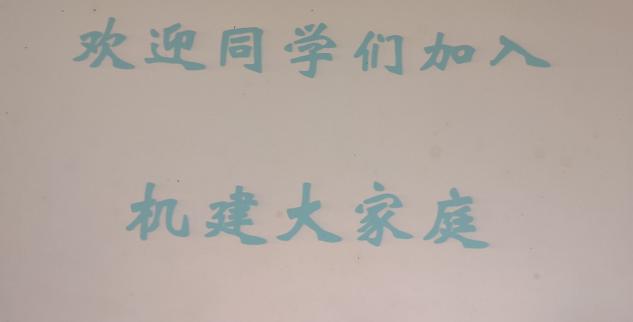 欢迎同学们加入
机建大家庭